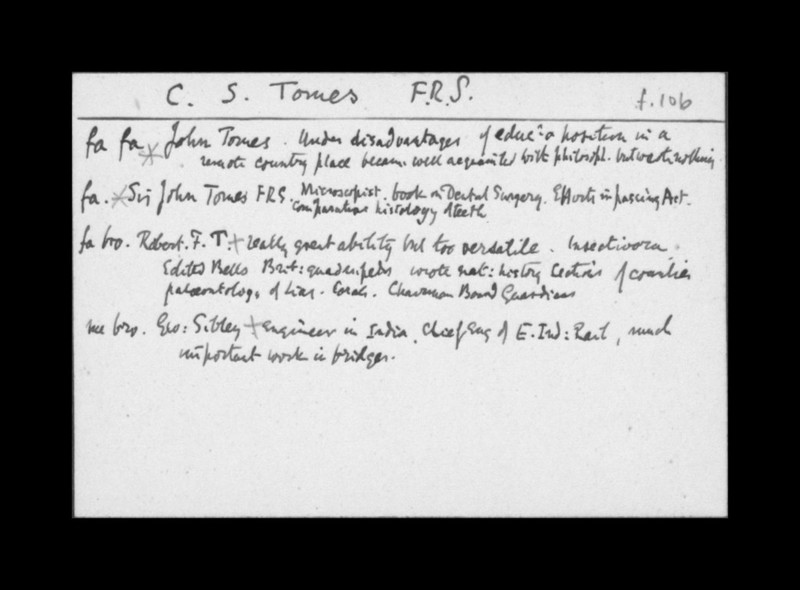 C. S. Tomes F.R.S. f.106
fa fa John Tomes. Under disadvantages of educ:n & position in a
remote country place became well acquainted with philosoph. but wrote nothing.
fa. Sir John Tomes FRS. Microscopist. book on Dental Surgery. Efforts in passing Act.
comparative histology of teeth
fa bro. Robert. F. T. + really great ability but too versatile. Insectivora.
Edited Bells Brit: quadrupeds wrote nat: history Sections of counties
palaeontology of Lias. Corals. Chairman Board Guardians
me bro. Geo: Sibley + engineer in India. Chief Eng of E. Ind: Rail, much
important work in bridges.